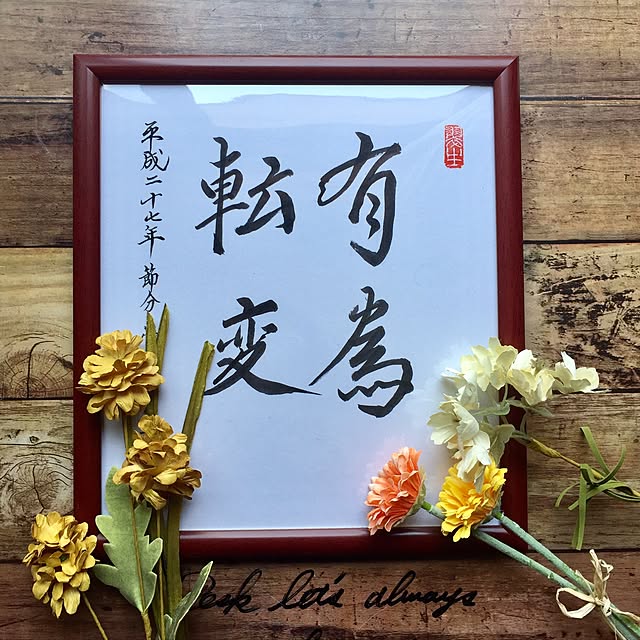 有為
転変
平成二十七年 節分
let's always